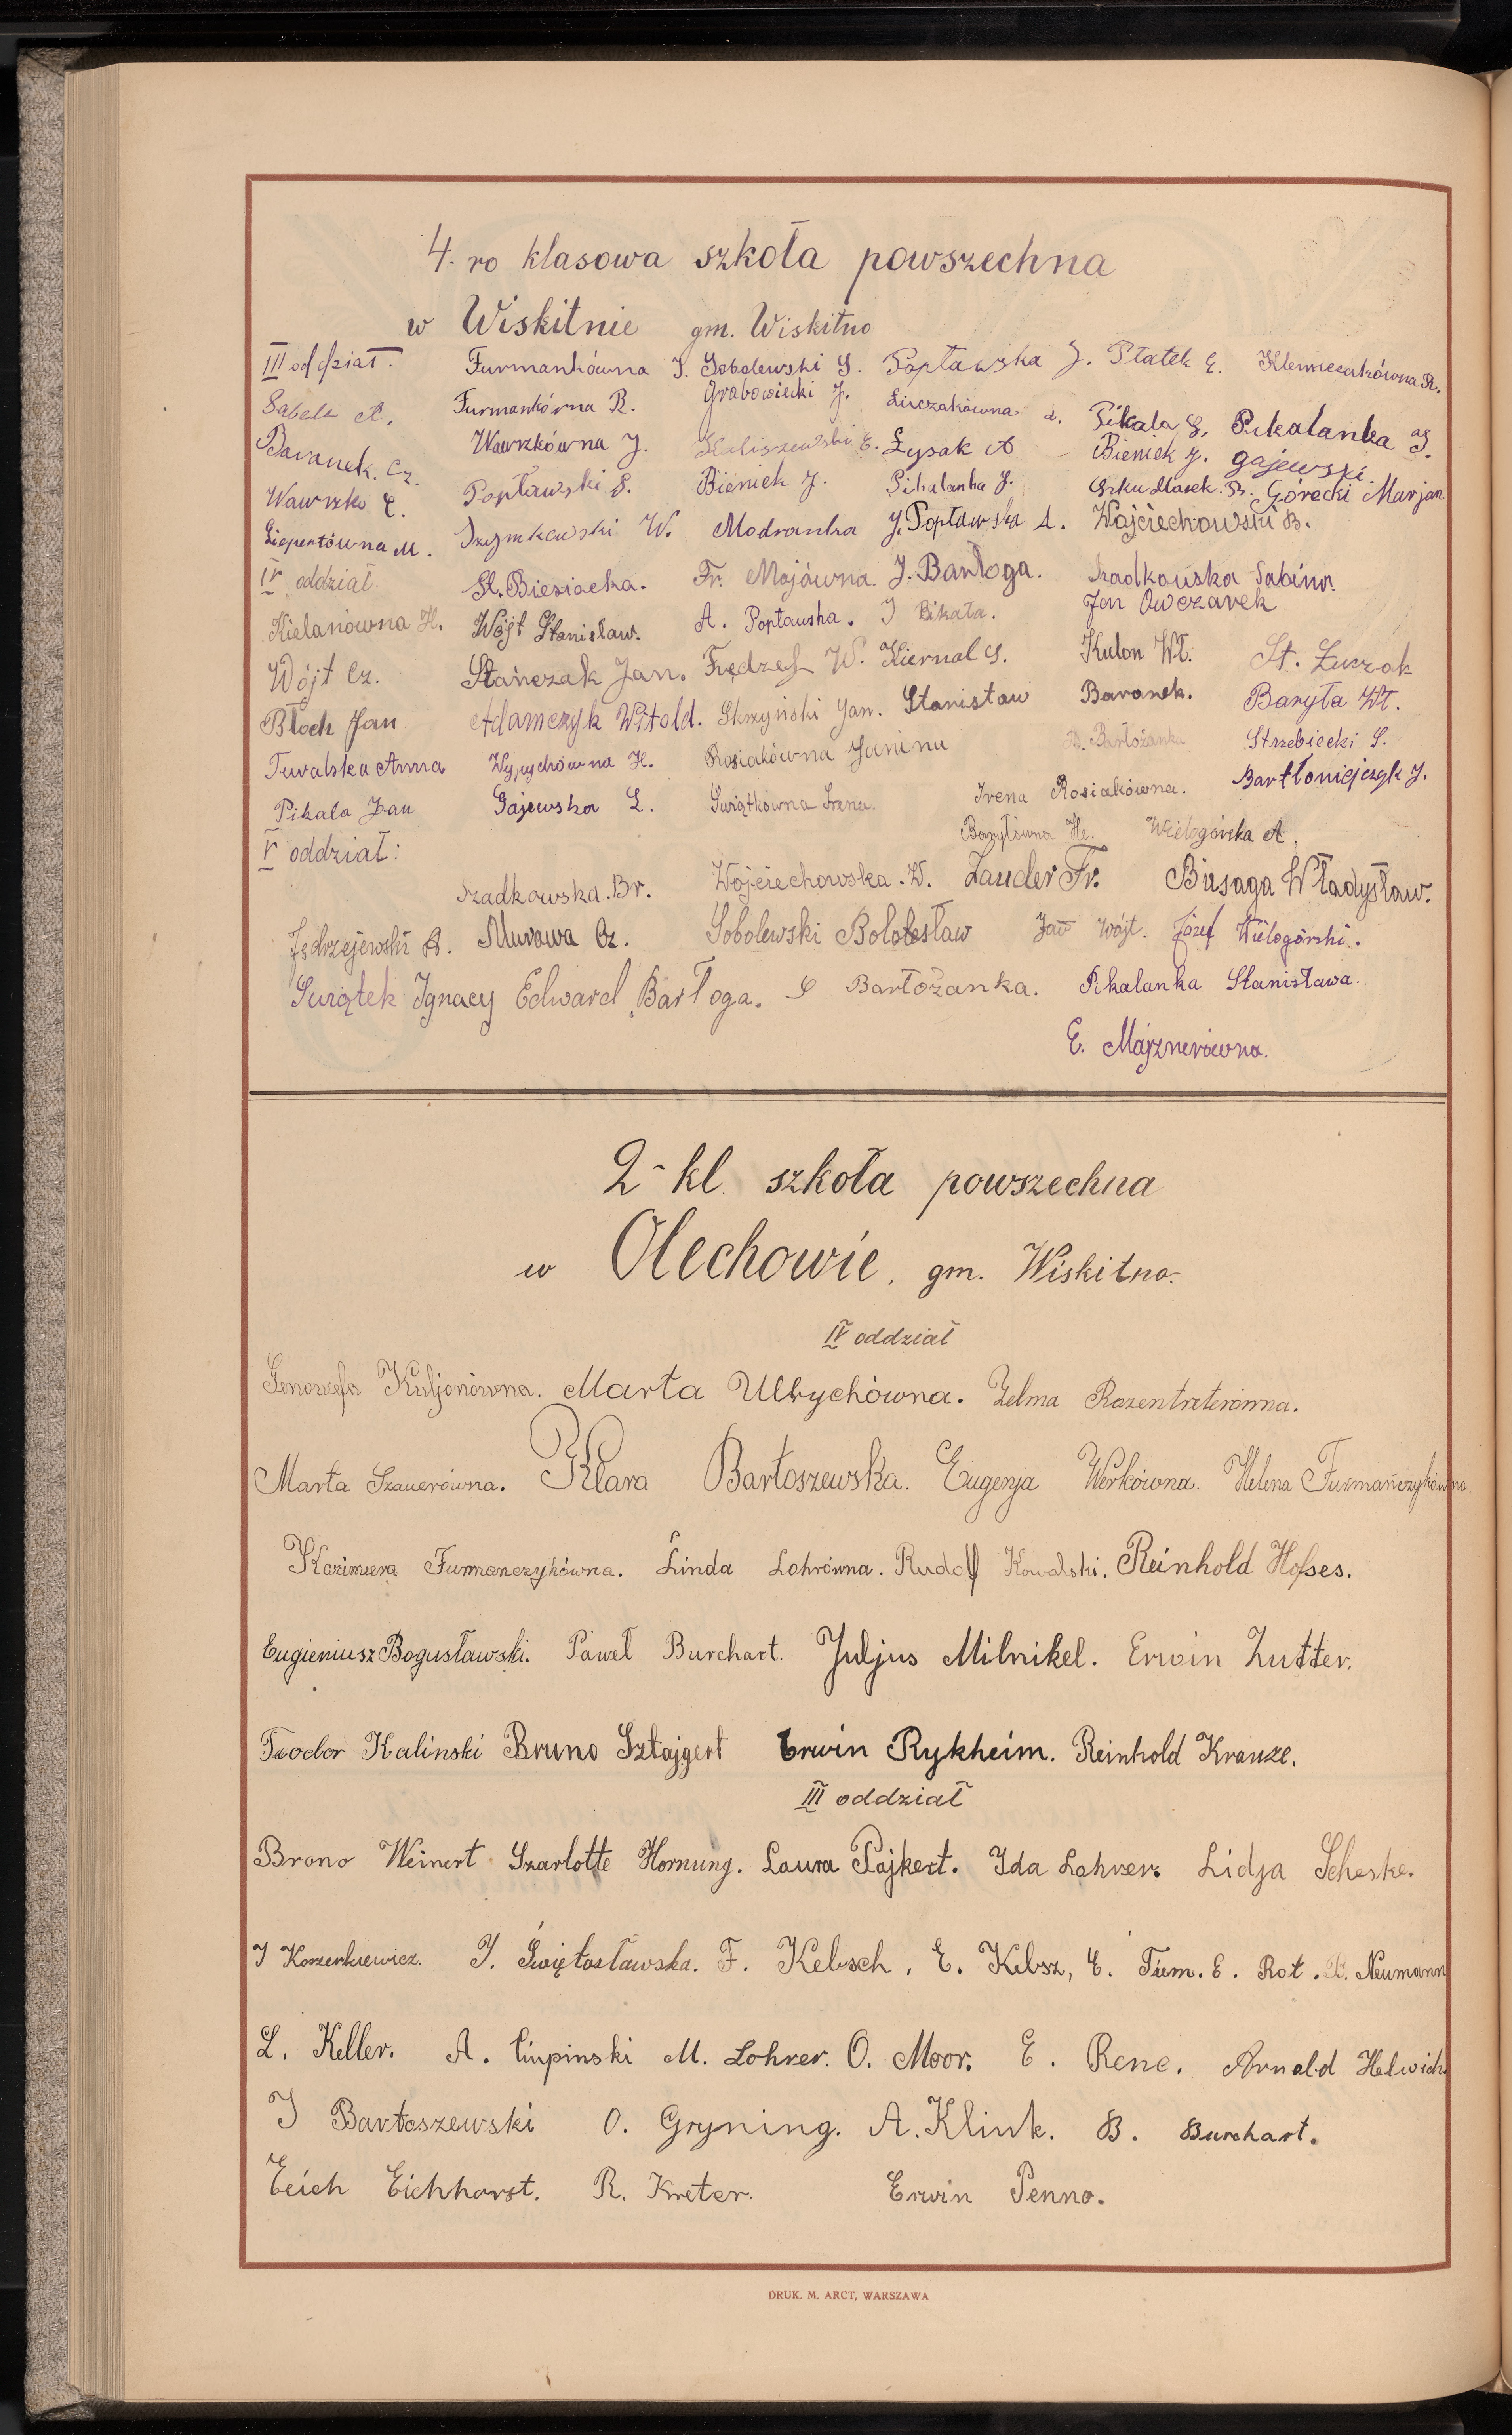 4. ro klasowa szkoła powszechna
w Wiskitnie gm. Wiskitno
III oddział. Furmankówna J. Sobolewski S. Popławska J. Płatek E. Klemczakówna R.
Sabela A. Furmankówna R. Grabowiecki J. Luczakówna A. Pikala S. Pikalanka J.
Baranek. Cz. Wawrzkówna J. Haliszewski E. Łysak A Bieniek J. gajewski.
Wawrzko E. Popławski S. Bieniek J. Pikalanka J. Górecki Marjan
Liepertówna M. Szymkowski W. Modranka J. Popławska A. Wojciechowski B.
IV oddział. St. Biesiacka. Fr. Mojówna. J. Bartoga. Szadkowska Sabina.
Kielanówna H. Wójt Stanisław. A. Popławska. J Pikała. Jan Owczarek
Wójt Cz. Stańczak Jan. Frędzel W. Kiernal S. Kulon Wł. St. Łuczak
Błoch Jan Adamczyk Witold. Skrzyński Jan. Stanisław Baranek. Baryła Wł.
Tuwalska Anna Wypychówna H. Rosiakówna Janina B. Bartożanka Strzebiecki S.
Pikala Jan Gajewska L. Świątkówna Irena. Irena Rosiakówna. Bartłomiejczyk J.
V oddział: Baryłówna He. Wielogórska A.
Szadkowska. Br. Wojciechowska. W. Zauder Fr. Busaga Władysław.
Jędrzejewski A. Murawa Cz. Sobolewski Bolotesław Jan Wójt. Józef Wielogórski.
Świątek Ignacy Edward Bartoga. S Bartożanka. Pikalanka Stanisława.
E. Majznerówna.
2-kl. szkoła powszechna
w Olechowie, gm. Wiskitno.
IV oddział
Genowefa Kuljonówna. Marta Ulrychówna. Zelma Rozentreterówna.
Marta Szauerówna. Klara Bartoszewska. Eugenja Werkówna. Helena Furmańczykówna.
Kazimiera Furmanczykówna. Linda Lohrówna. Rudolf Kowalski. Reinhold Hofses.
Eugieniusz Bogusławski. Paweł Burchart. Juljus Milnikel. Erwin Zutter.
Teodor Kalinski Bruno Sztajgert Erwin Rykheim. Reinhold Krauze.
III oddział
Brono Weinert Szarlotte Hornung. Laura Pajkert. Ida Lohrer. Lidja Scheske.
J Koszerkiewicz. J. Świętosławska. F. Kebsch, E. Kebsz, E. Tiem. E. Rot. B. Neumann
L. Keller. A. Ciupinski M. Lohrer. O. Moor. E. Rene. Arnold Helwich.
J Bartoszewski O. Gryning. A. Klink. B. Burchart.
Erich Eichhorst. R. Kreter. Erwin Penno.
DRUK. M. ARCT, WARSZAWA